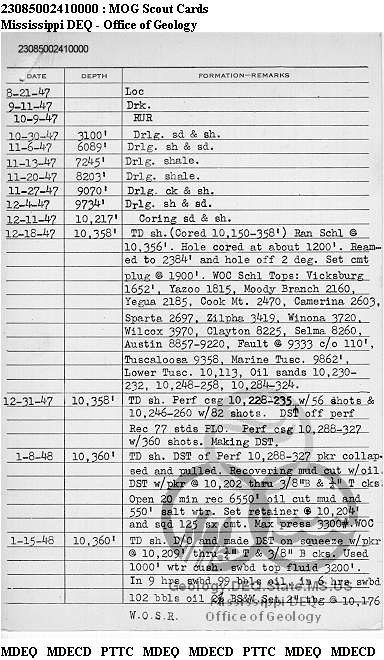 23085002410000 : MOG Scout Cards
Mississippi DEQ - Office of Geology
23085002410000
DATE DEPTH FORMATION—REMARKS
8-21-47 Loc
9-11-47 Drk.
10-9-47 RUR
10-30-47 3100' Drlg. sd & sh.
11-6-47 6089' Drlg. sh & sd.
11-13-47 7245' Drlg. shale.
11-20-47 8203' Drlg. shale.
11-27-47 9070' Drlg. ck & sh.
12-4-47 9734' Drlg. sh & sd.
12-11-47 10,217' Coring sd & sh.
12-18-47 10,358' TD sh.(Cored 10,150-358') Ran Schl @
10,356'. Hole cored at about 1200'. Ream-
ed to 2384' and hole off 2 deg. Set cmt
plug @ 1900'. WOC Schl Tops: Vicksburg
1652', Yazoo 1815, Moody Branch 2160,
Yegua 2185, Cook Mt. 2470, Camerina 2603,
Sparta 2697, Zilpha 3419, Winona 3720,
Wilcox 3970, Clayton 8225, Selma 8260,
Austin 8857-9220, Fault @ 9333 c/o 110',
Tuscaloosa 9358, Marine Tusc. 9862',
Lower Tusc. 10,113, Oil sands 10,230-
232, 10,248-258, 10,284-324.
12-31-47 10,358' TD sh. Perf csg 10,228-235 w/56 shots &
10,246-260 w/82 shots. DST off perf
Rec 77 stds FLO. Perf csg 10,288-327
w/360 shots. Making DST.
1-8-48 10,360' TD sh. DST of Perf 10,288-327 pkr collap-
sed and pulled. Recovering mud cut w/oil
DST w/pkr @ 10,202 thru 3/8"B & ¼" T cks
Open 20 min rec 6550' oil cut mud and
550' salt wtr. Set retainer @ 10,204'
and sqd 125 sx cmt. Max press 3300#.WOC
1-15-48 10,360' TD sh. D/O and made DST on squeeze w/pkr
@ 10,209' thru ¼" T & 3/8" B cks. Used
1000' wtr cush. swbd top fluid 3200'.
In 9 hrs swbd 99 bbls oil. in 6 hrs swbd
102 bbls oil 2% BS&W Set 2" tbg @ 10,176
W.O.S.R.
Geology.DEQ.State.MS.US
Mississippi DEQ
Office of Geology
MDEQ MDECD PTTC MDEQ MDECD PTTC MDEQ MDECD